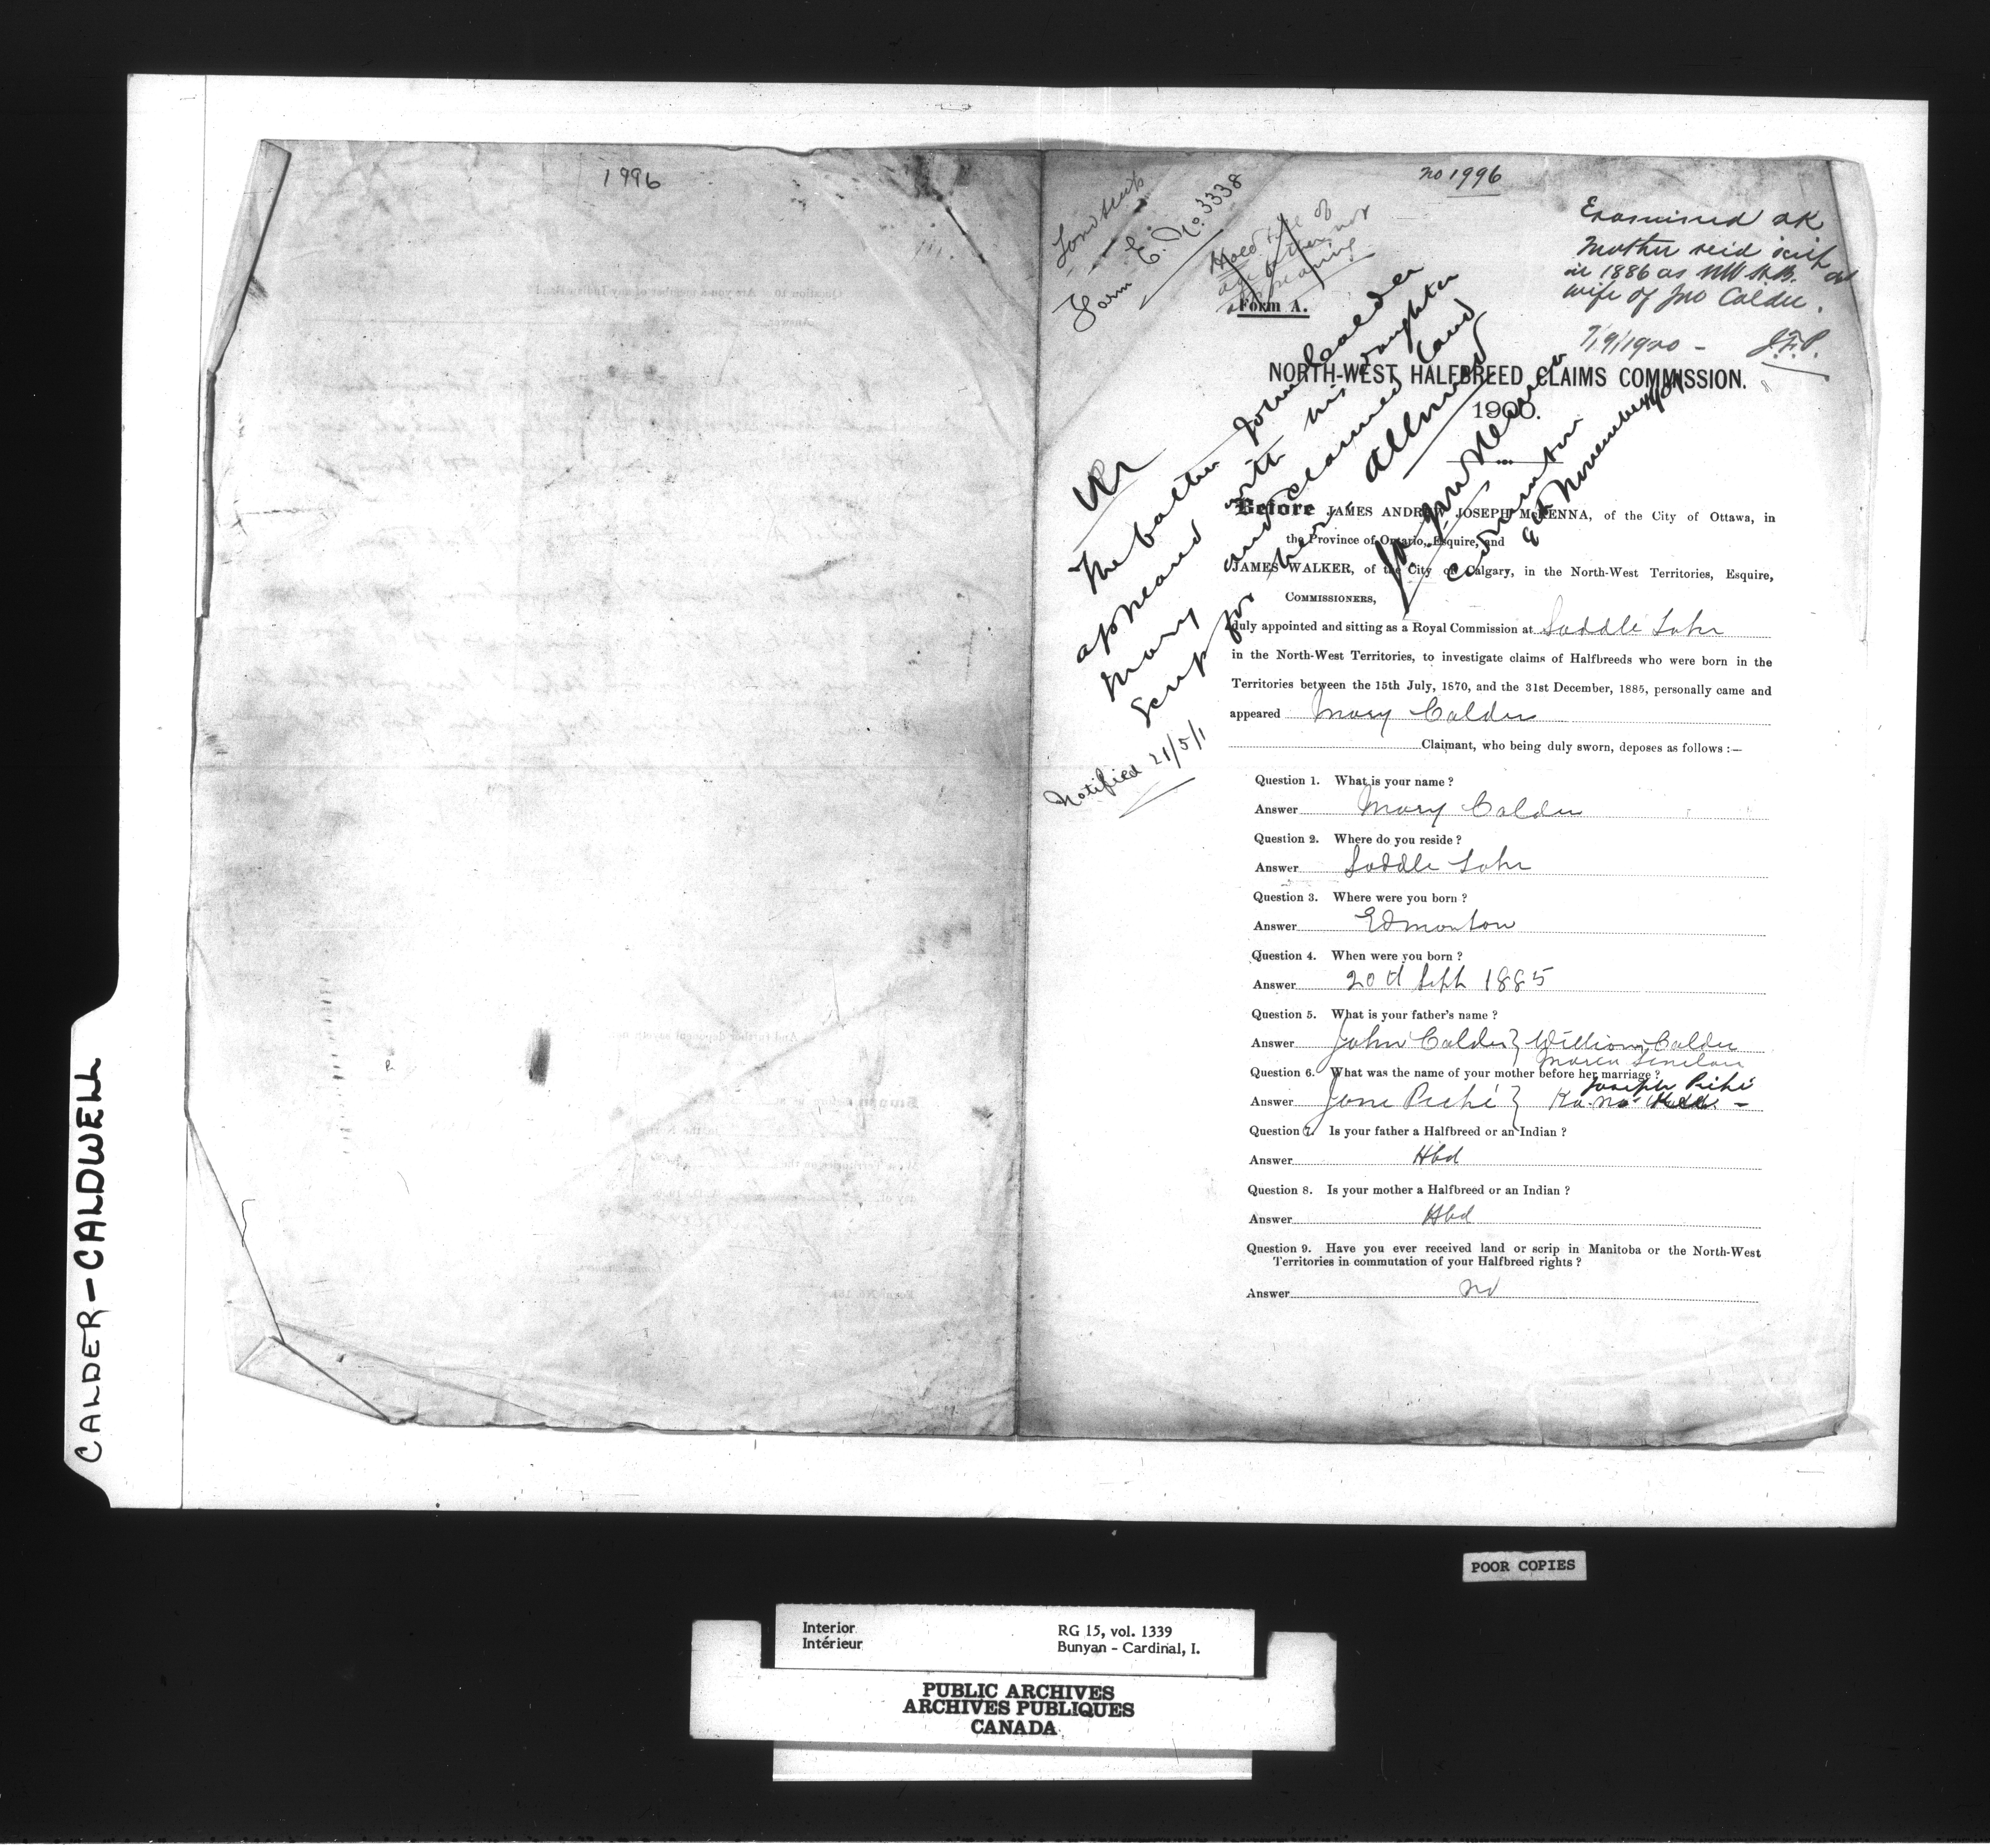 1996
no 1996
Land scrip
Form E. No. 3338
Hold till
father
appearing
Form A.
Examined OK
Mother recd scrip
in 1886 as NWHB. as
wife of Jno Calder.
7/9/1900 -
J.F.P.
NORTH-WEST HALFBREED CLAIMS COMMISSION.
1900.
The father John Calder
appeared with his daughter
Mary and claimed land
scrip for her. Allowed
J.A.J. McKenna
Commissioner
Ed November
Notified 21/5/1
Before JAMES ANDREW JOSEPH McKENNA, of the City of Ottawa, in
the Province of Ontario, Esquire, and
JAMES WALKER, of the City of Calgary, in the North-West Territories, Esquire,
COMMISSIONERS,
duly appointed and sitting as a Royal Commission at Saddle Lake
in the North-West Territories, to investigate claims of Halfbreeds who were born in the
Territories between the 15th July, 1870, and the 31st December, 1885, personally came and
appeared Mary Calder
Claimant, who being duly sworn, deposes as follows :—
Question 1. What is your name ?
Answer Mary Calder
Question 2. Where do you reside ?
Answer Saddle Lake
Question 3. Where were you born ?
Answer Edmonton
Question 4. When were you born ?
Answer 20th Sept 1885
Question 5. What is your father's name ?
Answer John Calder } William Calder
Maria Sinclair
Question 6. What was the name of your mother before her marriage ?
Joseph Piché
Answer Jane Piché }
Question 7. Is your father a Halfbreed or an Indian ?
Answer Hbd
Question 8. Is your mother a Halfbreed or an Indian ?
Answer Hbd
Question 9. Have you ever received land or scrip in Manitoba or the North-West
Territories in commutation of your Halfbreed rights ?
Answer no
CALDER-CALDWELL
POOR COPIES
Interior
Intérieur
RG 15, vol. 1339
Bunyan - Cardinal, I.
PUBLIC ARCHIVES
ARCHIVES PUBLIQUES
CANADA